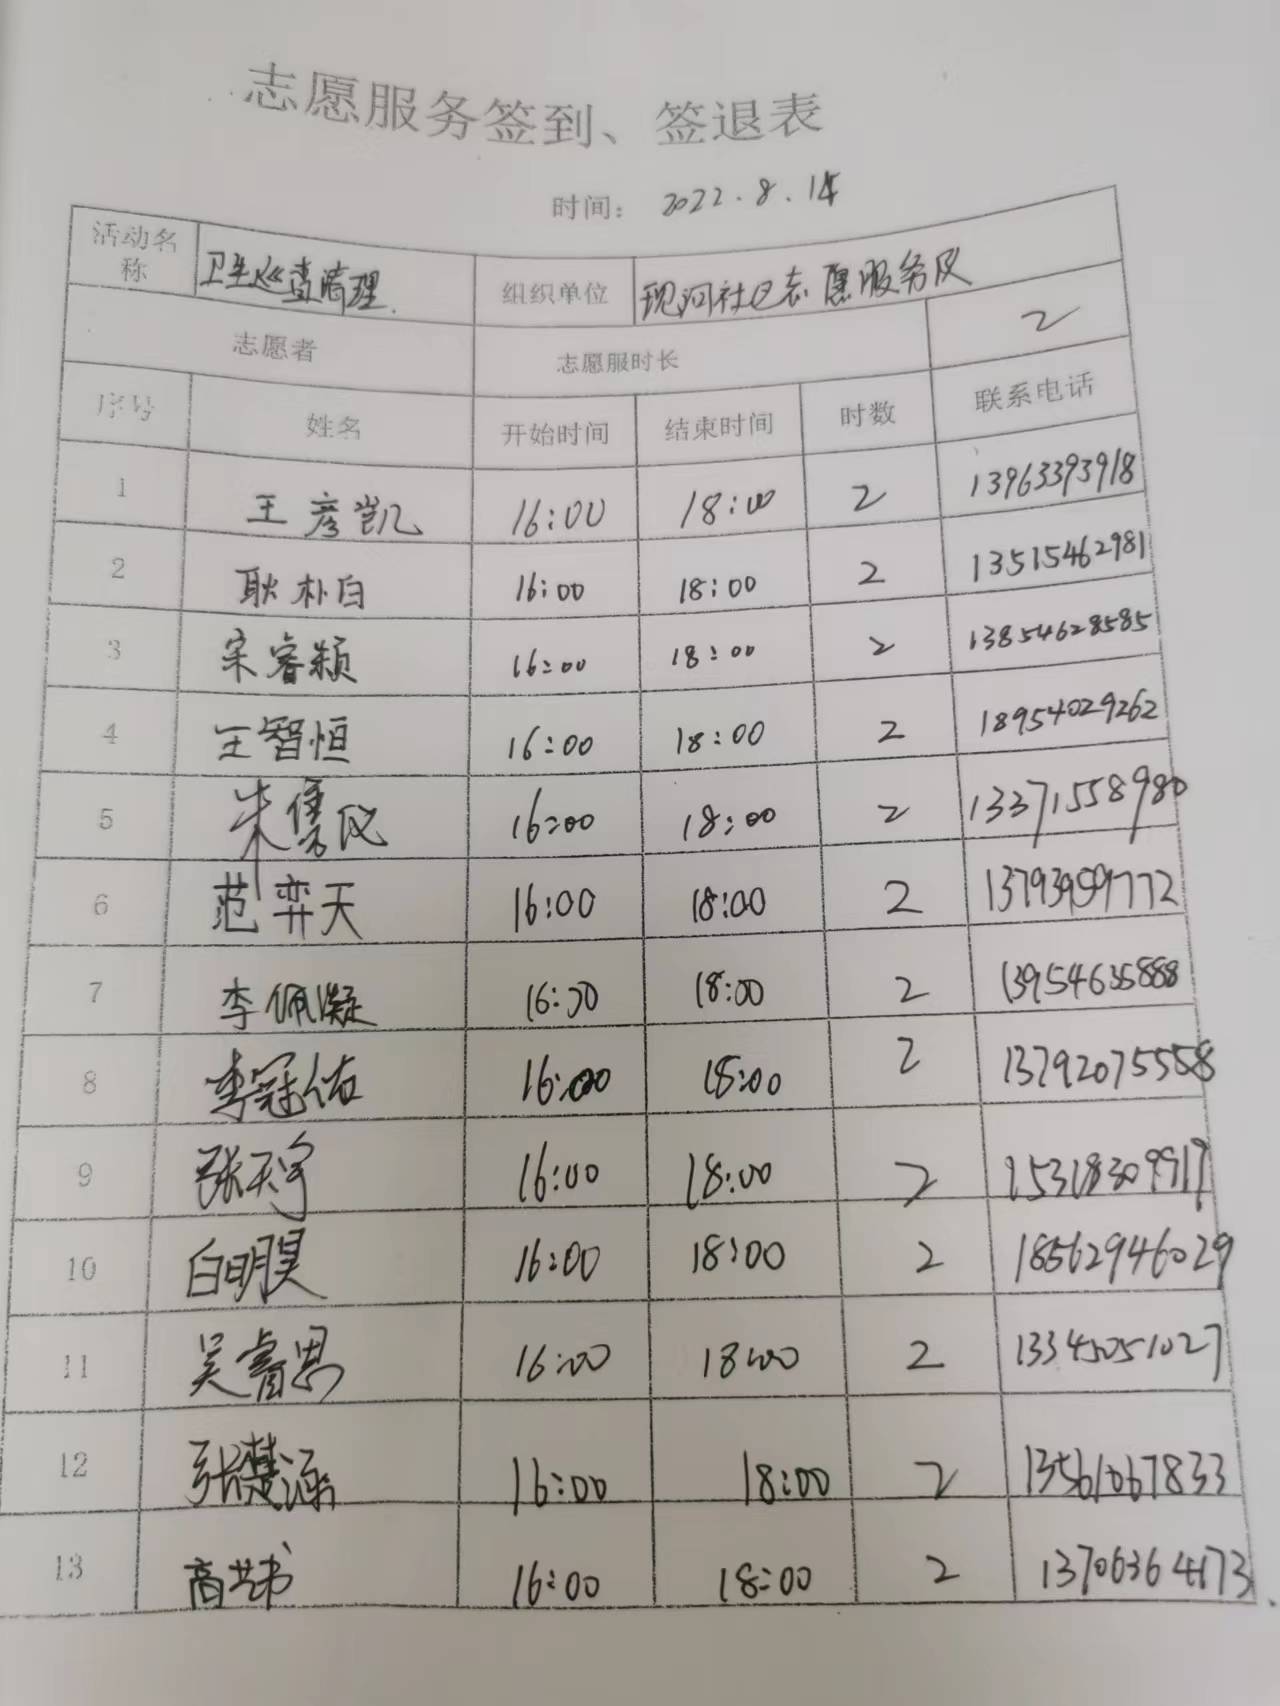 志愿服务签到、签退表
时间： 2022.8.14
活动名称 卫生巡查清理. 组织单位 现河社区志愿服务队
志愿者 志愿服时长 2
序号 姓名 开始时间 结束时间 时数 联系电话
1 王彦凯 16:00 18:00 2 13963393918
2 耿朴白 16:00 18:00 2 13515462981
3 宋睿颖 16:00 18:00 2 13854628585
4 王智恒 16:00 18:00 2 18954029262
5 朱隽仪 16:00 18:00 2 13371558980
6 范弈天 16:00 18:00 2 13793959772
7 李佩凝 16:30 18:00 2 13954635888
8 李冠佑 16:00 18:00 2 13792075558
9 张天宇 16:00 18:00 2 15318309919
10 白明昊 16:00 18:00 2 18562946029
11 吴睿思 16:00 18:00 2 13345051027
12 张楚涵 16:00 18:00 2 13561067833
13 高艺书 16:00 18:00 2 13706364173